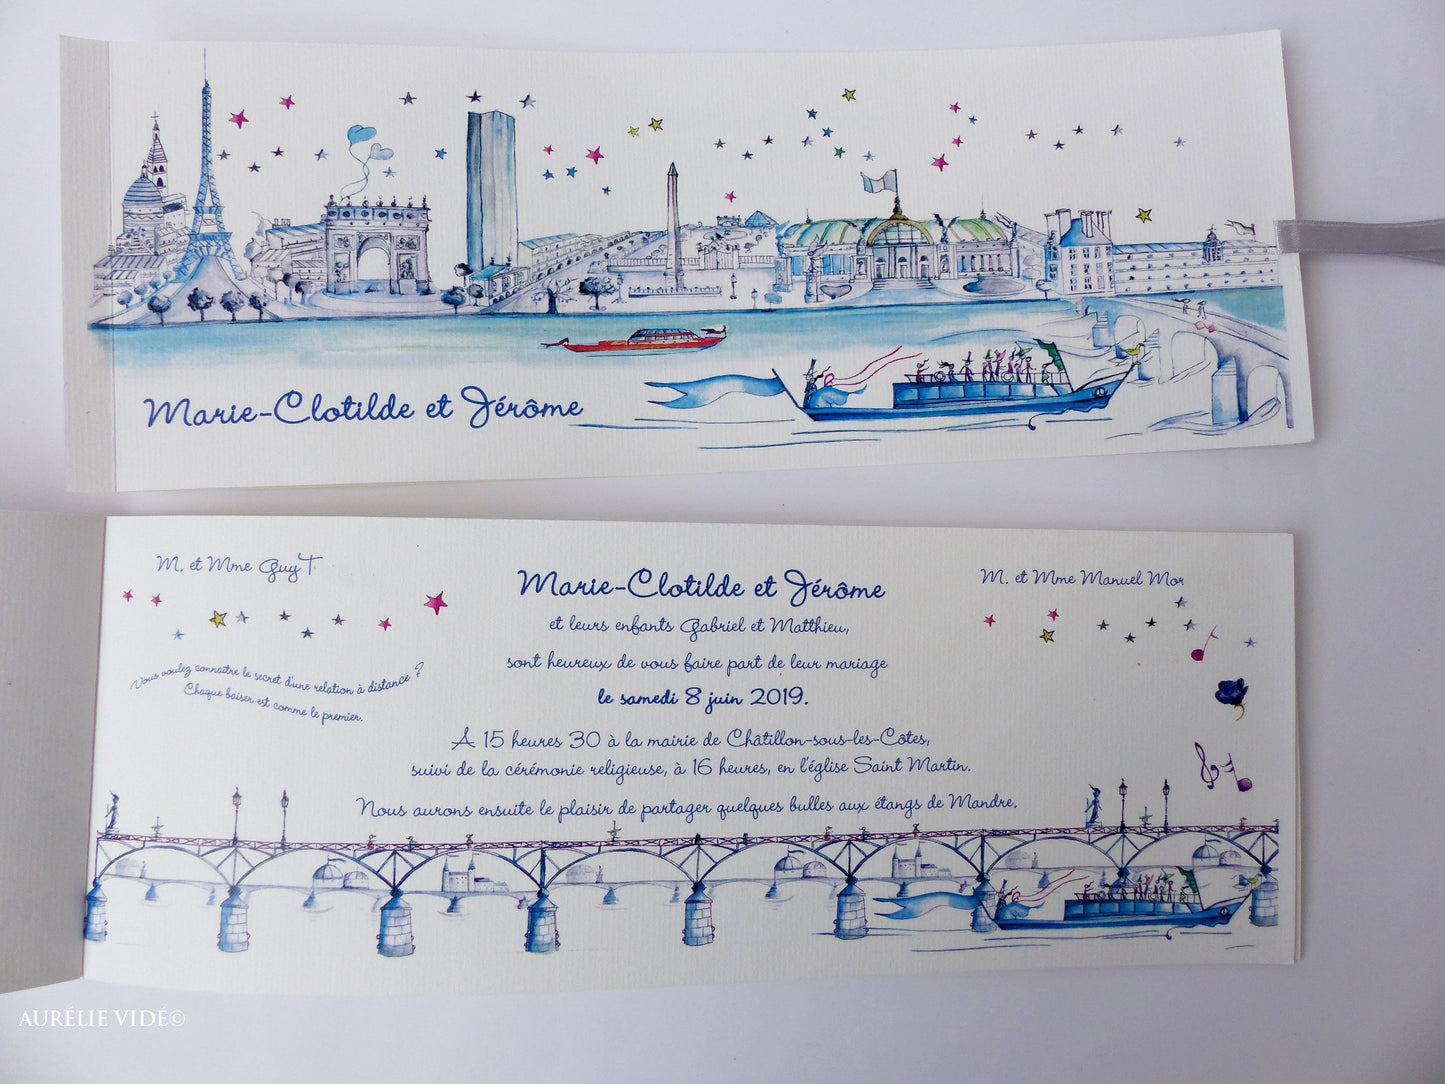 Marie-Clotilde et Jérôme
M. et Mme Guy T
M. et Mme Manuel Mor
Vous voulez connaître le secret d'une relation à distance ?
Chaque baiser est comme le premier.
Marie-Clotilde et Jérôme
et leurs enfants Gabriel et Matthieu,
sont heureux de vous faire part de leur mariage
le samedi 8 juin 2019.
A 15 heures 30 à la mairie de Châtillon-sous-les-Côtes,
suivi de la cérémonie religieuse, à 16 heures, en l'église Saint Martin.
Nous aurons ensuite le plaisir de partager quelques bulles aux étangs de Mandre.
AURÉLIE VIDÉ©